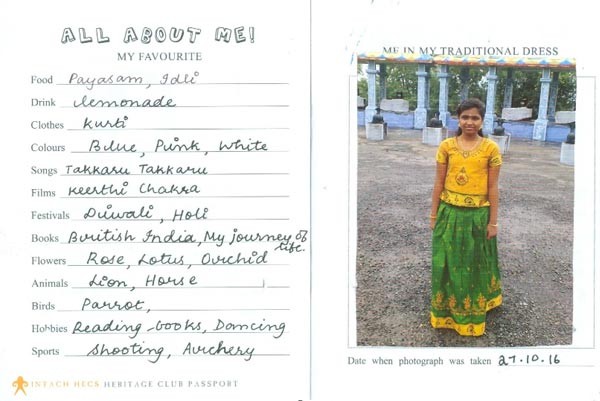 ALL ABOUT ME!
MY FAVOURITE
Food Payasam, Idli
Drink lemonade
Clothes Kurti
Colours Blue, Pink, White
Songs Takkaru Takkaru
Films Keerthi Chakra
Festivals Diwali, Holi
Books British India, My journey of life.
Flowers Rose, Lotus, Orchid
Animals Lion, Horse
Birds Parrot,
Hobbies Reading books, Dancing
Sports Shooting, Archery
INTACH HECS HERITAGE CLUB PASSPORT
ME IN MY TRADITIONAL DRESS
Date when photograph was taken 27.10.16